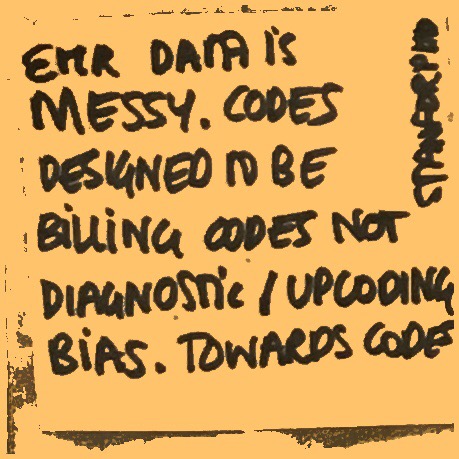 EMR DATA is
MESSY. CODES
DESIGNED TO BE
BiLLiNG CODES NOT
DIAGNOSTic / UPCODING
BiAS. TOWARDS CODES
STANFORD MD